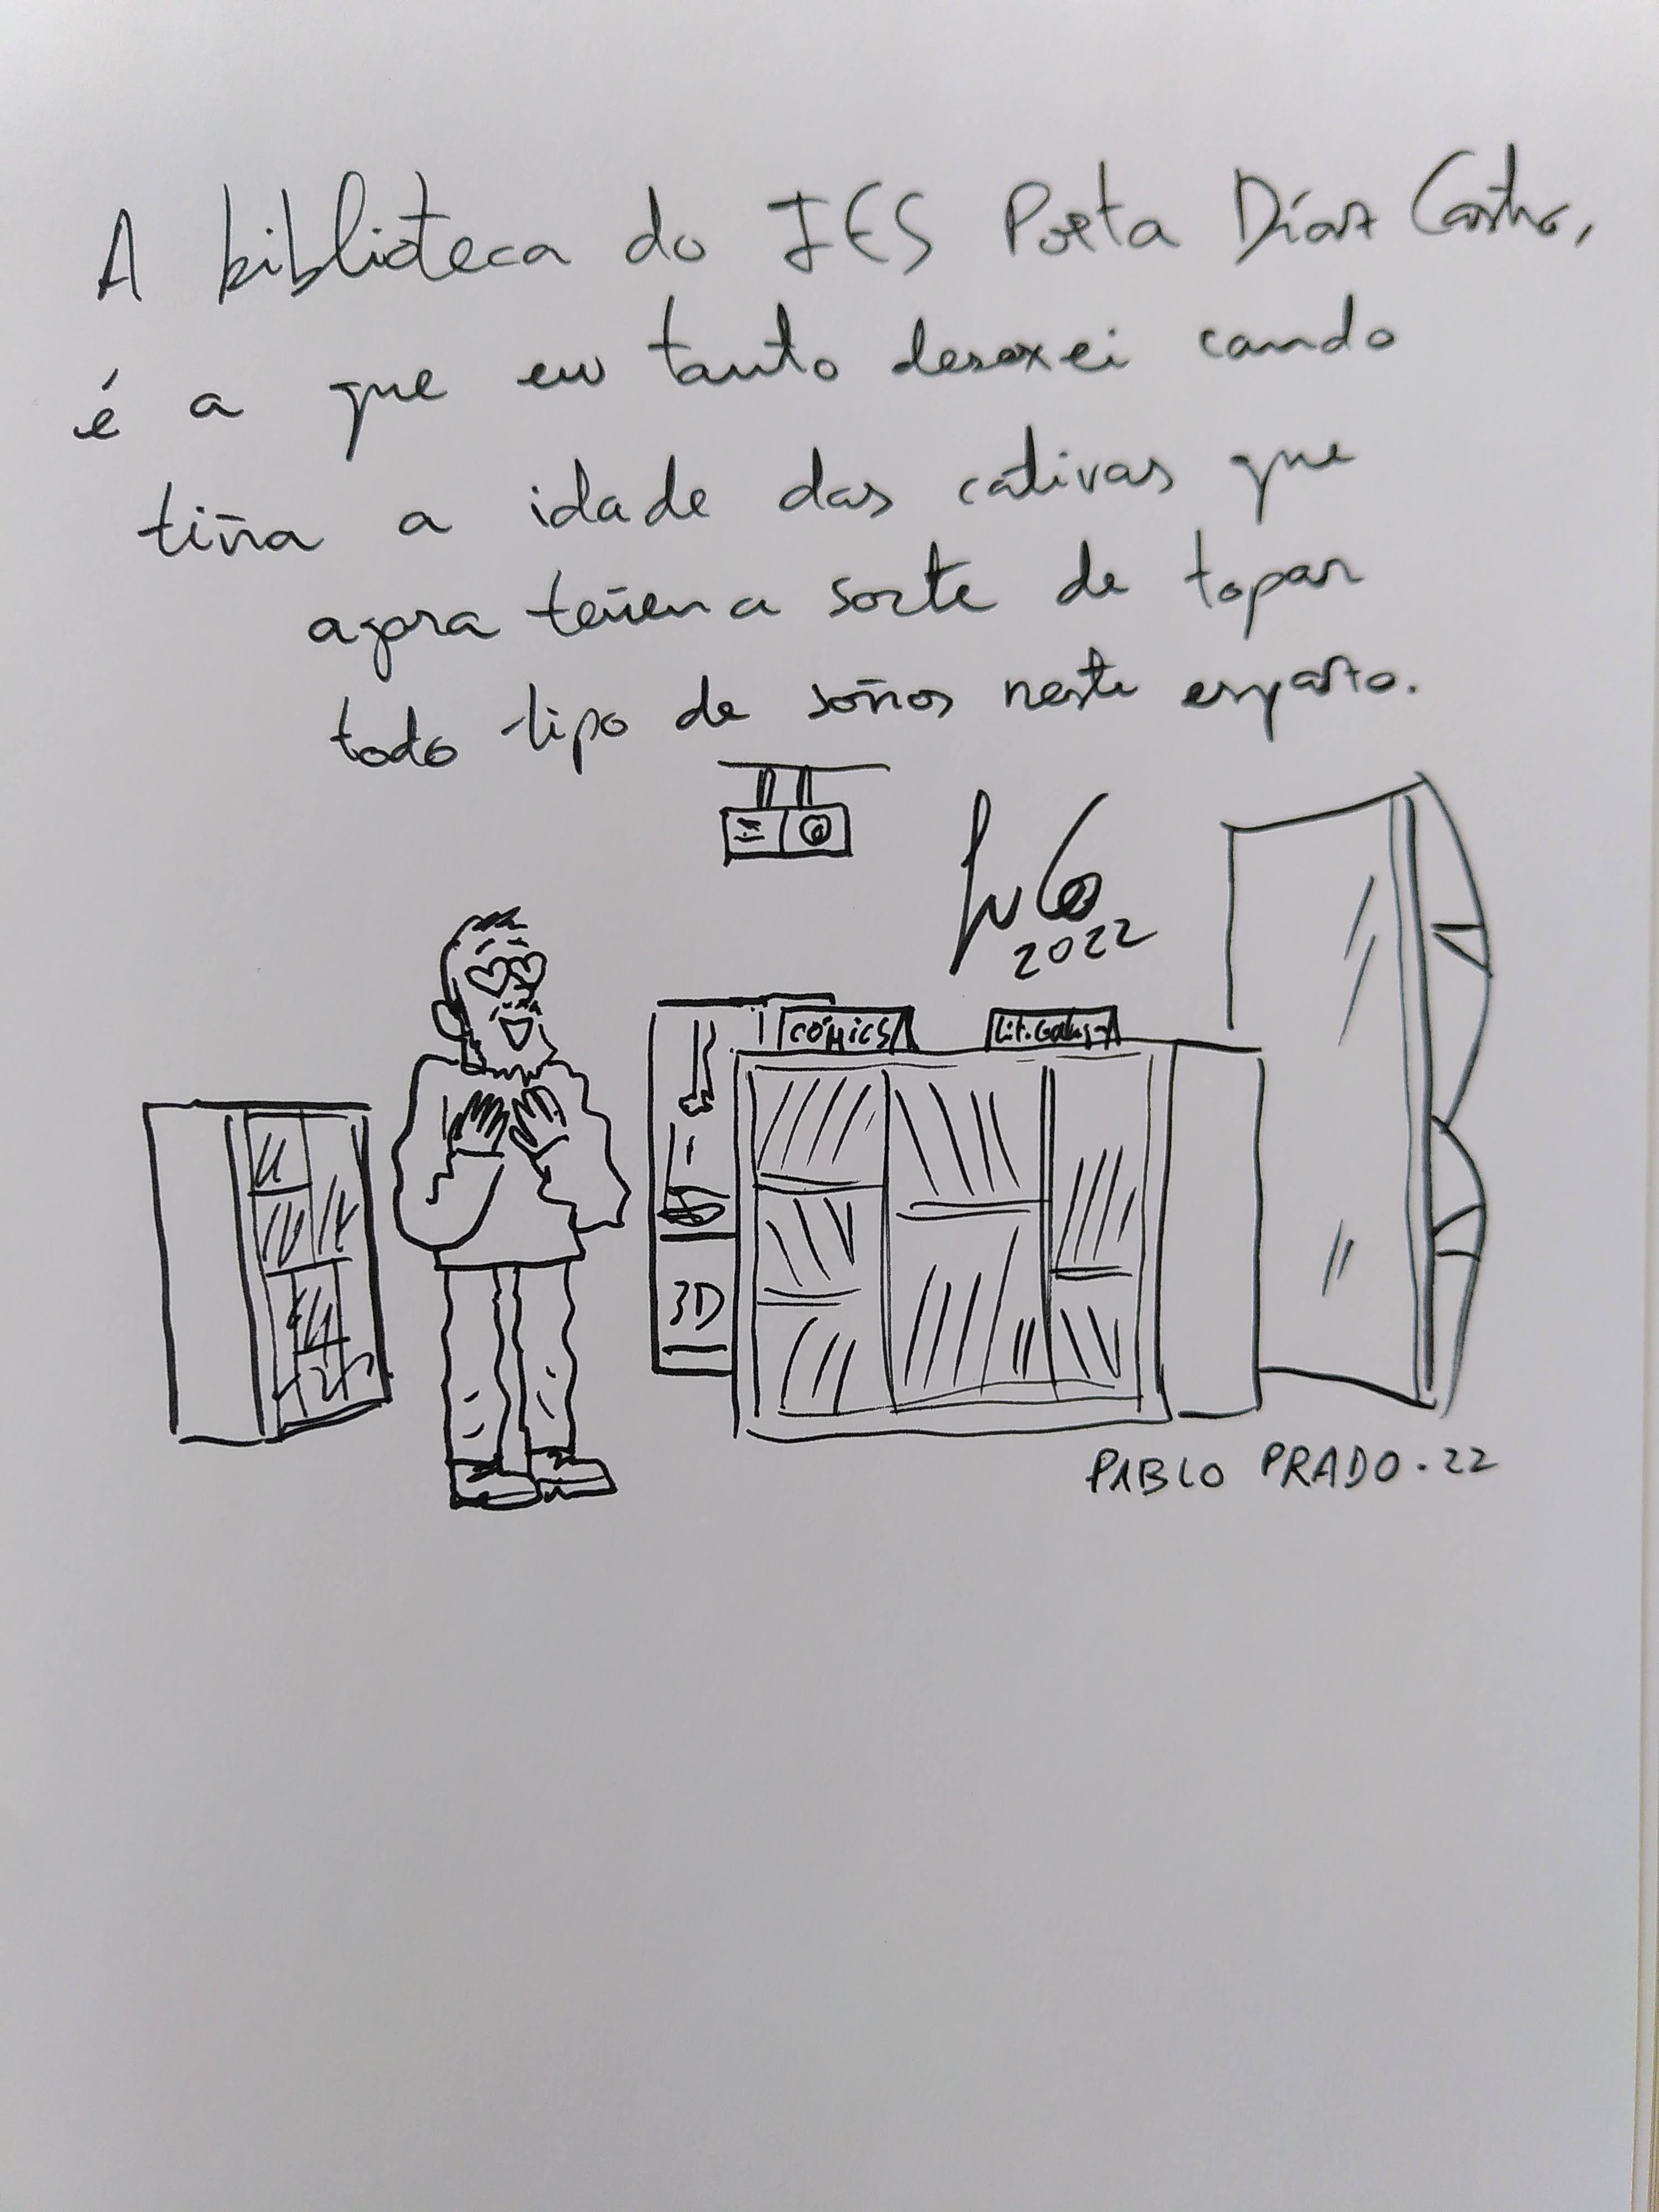 A biblioteca do IES Poeta Díaz Castro,
é a que eu tanto desexei cando
tiña a idade das cativas que
agora teñen a sorte de topar
todo tipo de soños neste espazo.
2022
CÓMICS
Lit. Galega
3D
PABLO PRADO · 22